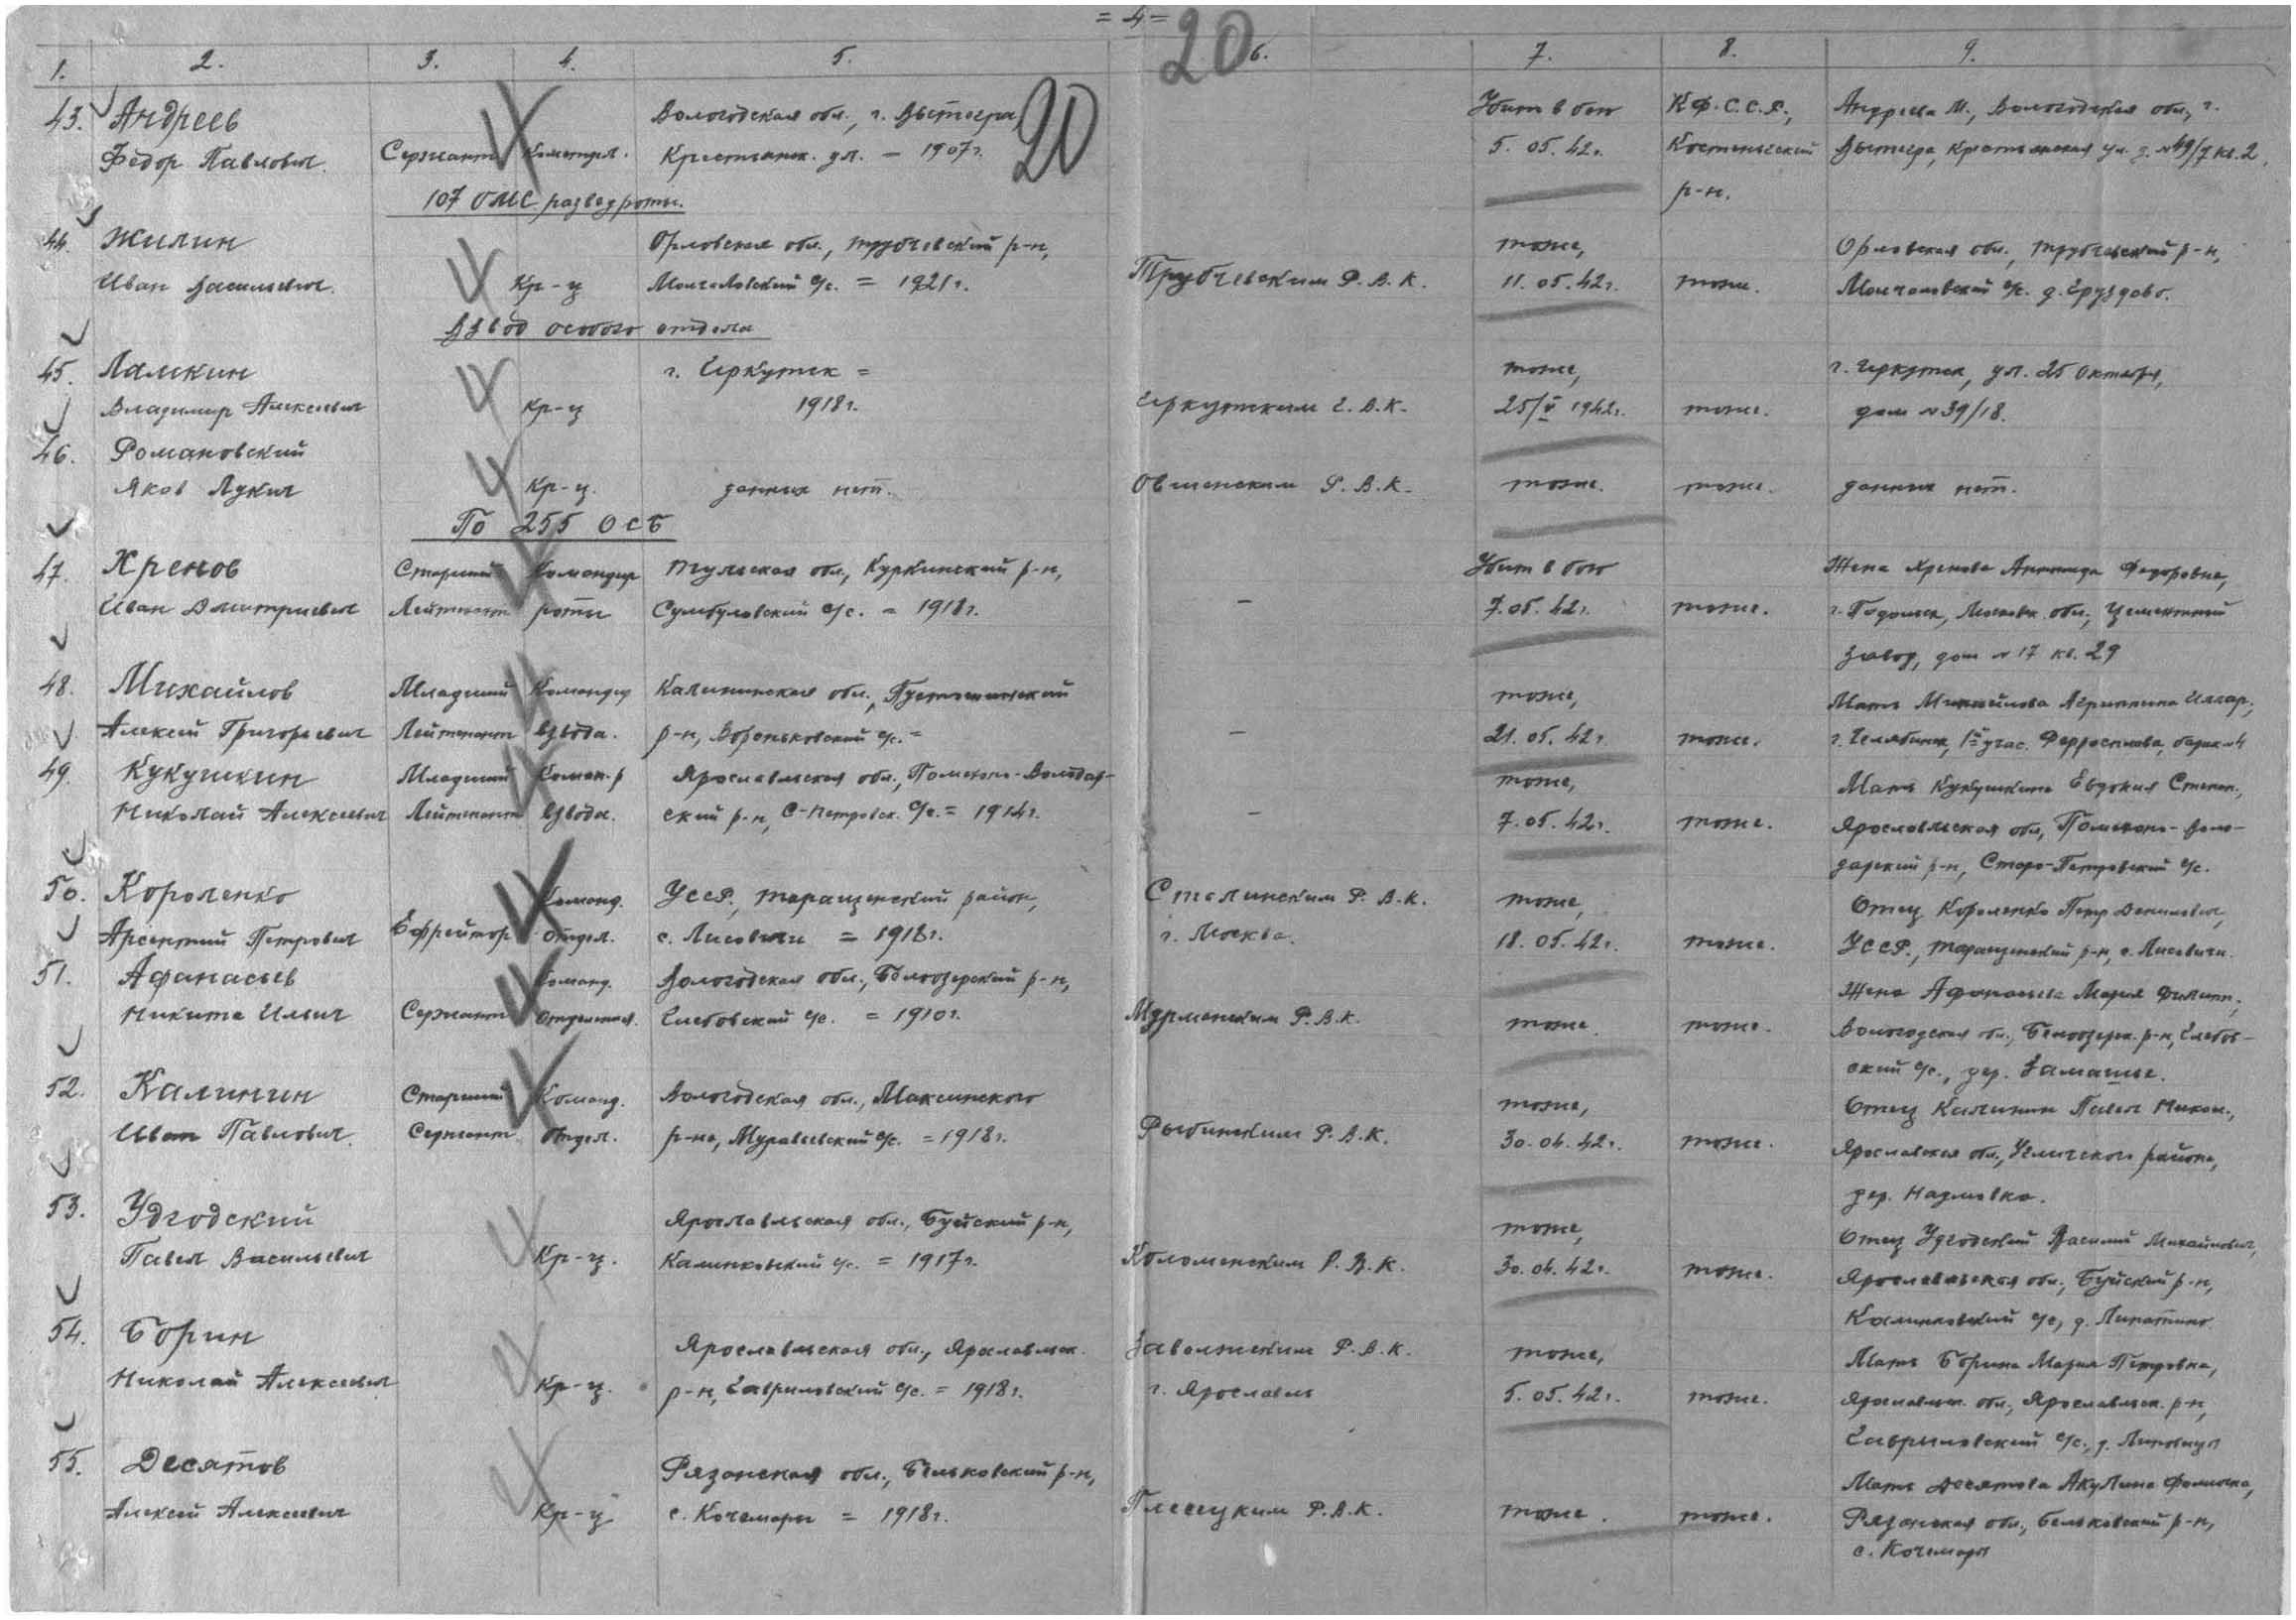 = 4 =
20
1. 2. 3. 4. 5. 6. 7. 8. 9.
43. Андреев Вологодская обл., г. Вытегра, 20 Убит в бою К.Ф.С.С.Р., Андреева М., Вологодская обл., г.
Федор Павлович. Сержант Ком.отдел. Крестьянск. ул. – 1907г. 5.05.42г. Кестеньгский Вытегра, Крестьянская ул. д. №49/7 кв.2.
р-н.
107 ОМС. разведроты.
44. Жилин Орловская обл., Трубчевский р-н, тоже, Орловская обл., Трубчевский р-н,
Иван Васильевич. Кр-ц Молчановский с/с. = 1921г. Трубчевским Р.В.К. 11.05.42г. тоже. Молчановский с/с. д.
Взвод особого отдела
45. Лямкин г. Иркутск = тоже, г. Иркутск, ул. 25 Октября,
Владимир Алексеевич Кр-ц 1918г. Иркутским Г.В.К. 25/V 1942г. тоже. дом №39/18.
46. Романовский
Яков Лукич Кр-ц. данных нет. Р.В.К. тоже. тоже. данных нет.
По 255 ОСБ
47. Хренов Старший Командир Тульская обл., Куркинский р-н, Убит в бою Жена Хренова Федоровна,
Иван Дмитриевич Лейтенант роты Сумбуловский с/с. = 1918г. – 7.05.42г. тоже. г. Подольск, Московск. обл., Цементный
завод, дом №17 кв. 29
48. Михайлов Младший Командир Калининская обл., Пустошинский тоже, Мать Михайлова Агрипина Иллар.,
Алексей Григорьевич Лейтенант взвода. р-н, Вореньковский с/с. = – 21.05.42г. тоже. г. Челябинск, 1й учас. Ферросплава, барак №4
49. Кукушкин Младший Коман-р Ярославская обл., Пошехоно-Володар- тоже, Мать Кукушкина Евдокия Степан.,
Николай Алексеевич Лейтенант взвода. ский р-н, С-Петровск. с/с. = 1914г. – 7.05.42г. тоже. Ярославльская обл, Пошехоно-Воло-
дарский р-н, Старо-Петровский с/с.
50. Короленко Команд. УССР., Таращенский район, Сталинским Р.В.К. тоже, Отец Короленко Петр Денисович,
Арсентий Петрович Ефрейтор отдел. с. Лисовичи = 1918г. г. Москва. 18.05.42г. тоже. УССР., Таращенский р-н, с. Лисовичи.
51. Афанасьев Команд. Вологодская обл., Белоозерский р-н, Жена Афанасьева Мария Филипп.,
Никита Ильич Сержант отделения. Глебовский с/с. = 1910г. Мурманским Р.В.К. тоже. тоже. Вологодская обл., Белоозерск. р-н, Глебов-
ский с/с., дер. Замашье.
52. Калинин Старший Команд. Вологодская обл., Максинского тоже, Отец Калинин Павел Никон.,
Иван Павлович. Сержант отдел. р-на, Муравьевский с/с. = 1918г. Рыбинским Р.В.К. 30.04.42г. тоже. Ярославская обл., Угличского района,
дер. Надмовка.
53. Удгодский Ярославльская обл., Буйский р-н, тоже, Отец Удгодский Василий Михайлович,
Павел Васильевич Кр-ц. Калинковский с/с. = 1917г. Коломенским Р.В.К. 30.04.42г. тоже. Ярославльская обл., Буйский р-н,
Калинковский с/с, д. Липатино.
54. Борин Ярославльская обл., Ярославльск. Заволжским Р.В.К. тоже, Мать Борина Мария Петровна,
Николай Алексеевич Кр-ц. р-н, Гавриловский с/с. = 1918г. г. Ярославль 5.05.42г. тоже. Ярославльск. обл., Ярославльск. р-н,
Гавриловский с/с., д. Липовицы
55. Десятов Рязанская обл., Бельковский р-н, Мать Десятова Акулина Фоминична,
Алексей Алексеевич Кр-ц с. Кочемары = 1918г. Плесецким Р.В.К. тоже. тоже. Рязанская обл., Бельковский р-н,
с. Кочемары